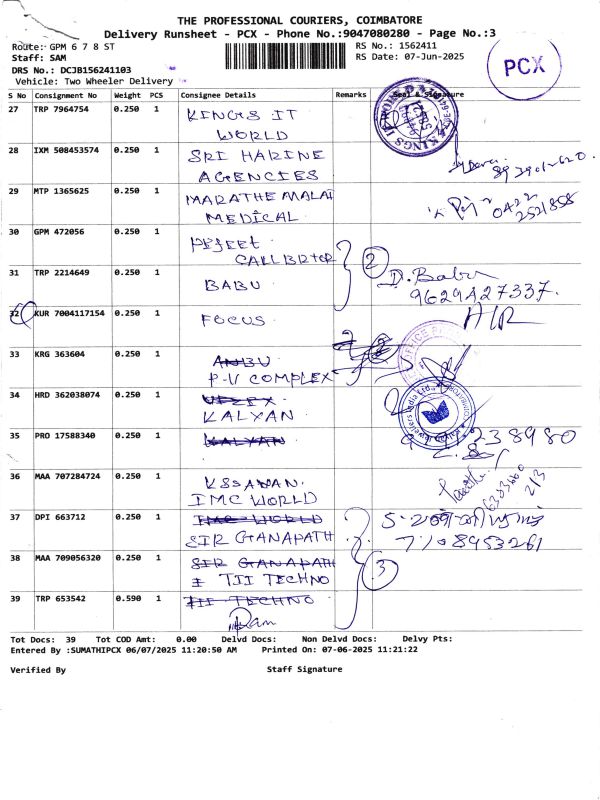 THE PROFESSIONAL COURIERS, COIMBATORE
Delivery Runsheet - PCX - Phone No.:9047080280 - Page No.:3
Route:- GPM 6 7 8 ST RS No.: 1562411
Staff: SAM RS Date: 07-Jun-2025
DRS No.: DCJB156241103
Vehicle: Two Wheeler Delivery
PCX
S No Consignment No Weight PCS Consignee Details Remarks Seal & Signature
27 TRP 7964754 0.250 1 KINGS IT
WORLD
28 IXM 508453574 0.250 1 SRI HARINE
AGENCIES
29 MTP 1365625 0.250 1 MARATHE MALAI
MEDICAL
0422
2521858
30 GPM 472056 0.250 1 PEFEET
CALLBRTOR
2
31 TRP 2214649 0.250 1 BABU D. Babu
9629427337.
32 KUR 7004117154 0.250 1 FOCUS H/R
33 KRG 363604 0.250 1 ANBU
P-V COMPLEX
34 HRD 362038074 0.250 1
KALYAN
35 PRO 17588340 0.250 1 KALYAN
36 MAA 707284724 0.250 1 KSSANAN.
IMC WORLD
37 DPI 663712 0.250 1 IMC WORLD
SIR GANAPATH
38 MAA 709056320 0.250 1 SIR GANAPATH
I TII TECHNO
3
39 TRP 653542 0.590 1 III TECHNO
Ram
Tot Docs: 39 Tot COD Amt: 0.00 Delvd Docs: Non Delvd Docs: Delvy Pts:
Entered By :SUMATHIPCX 06/07/2025 11:20:50 AM Printed On: 07-06-2025 11:21:22
Verified By Staff Signature